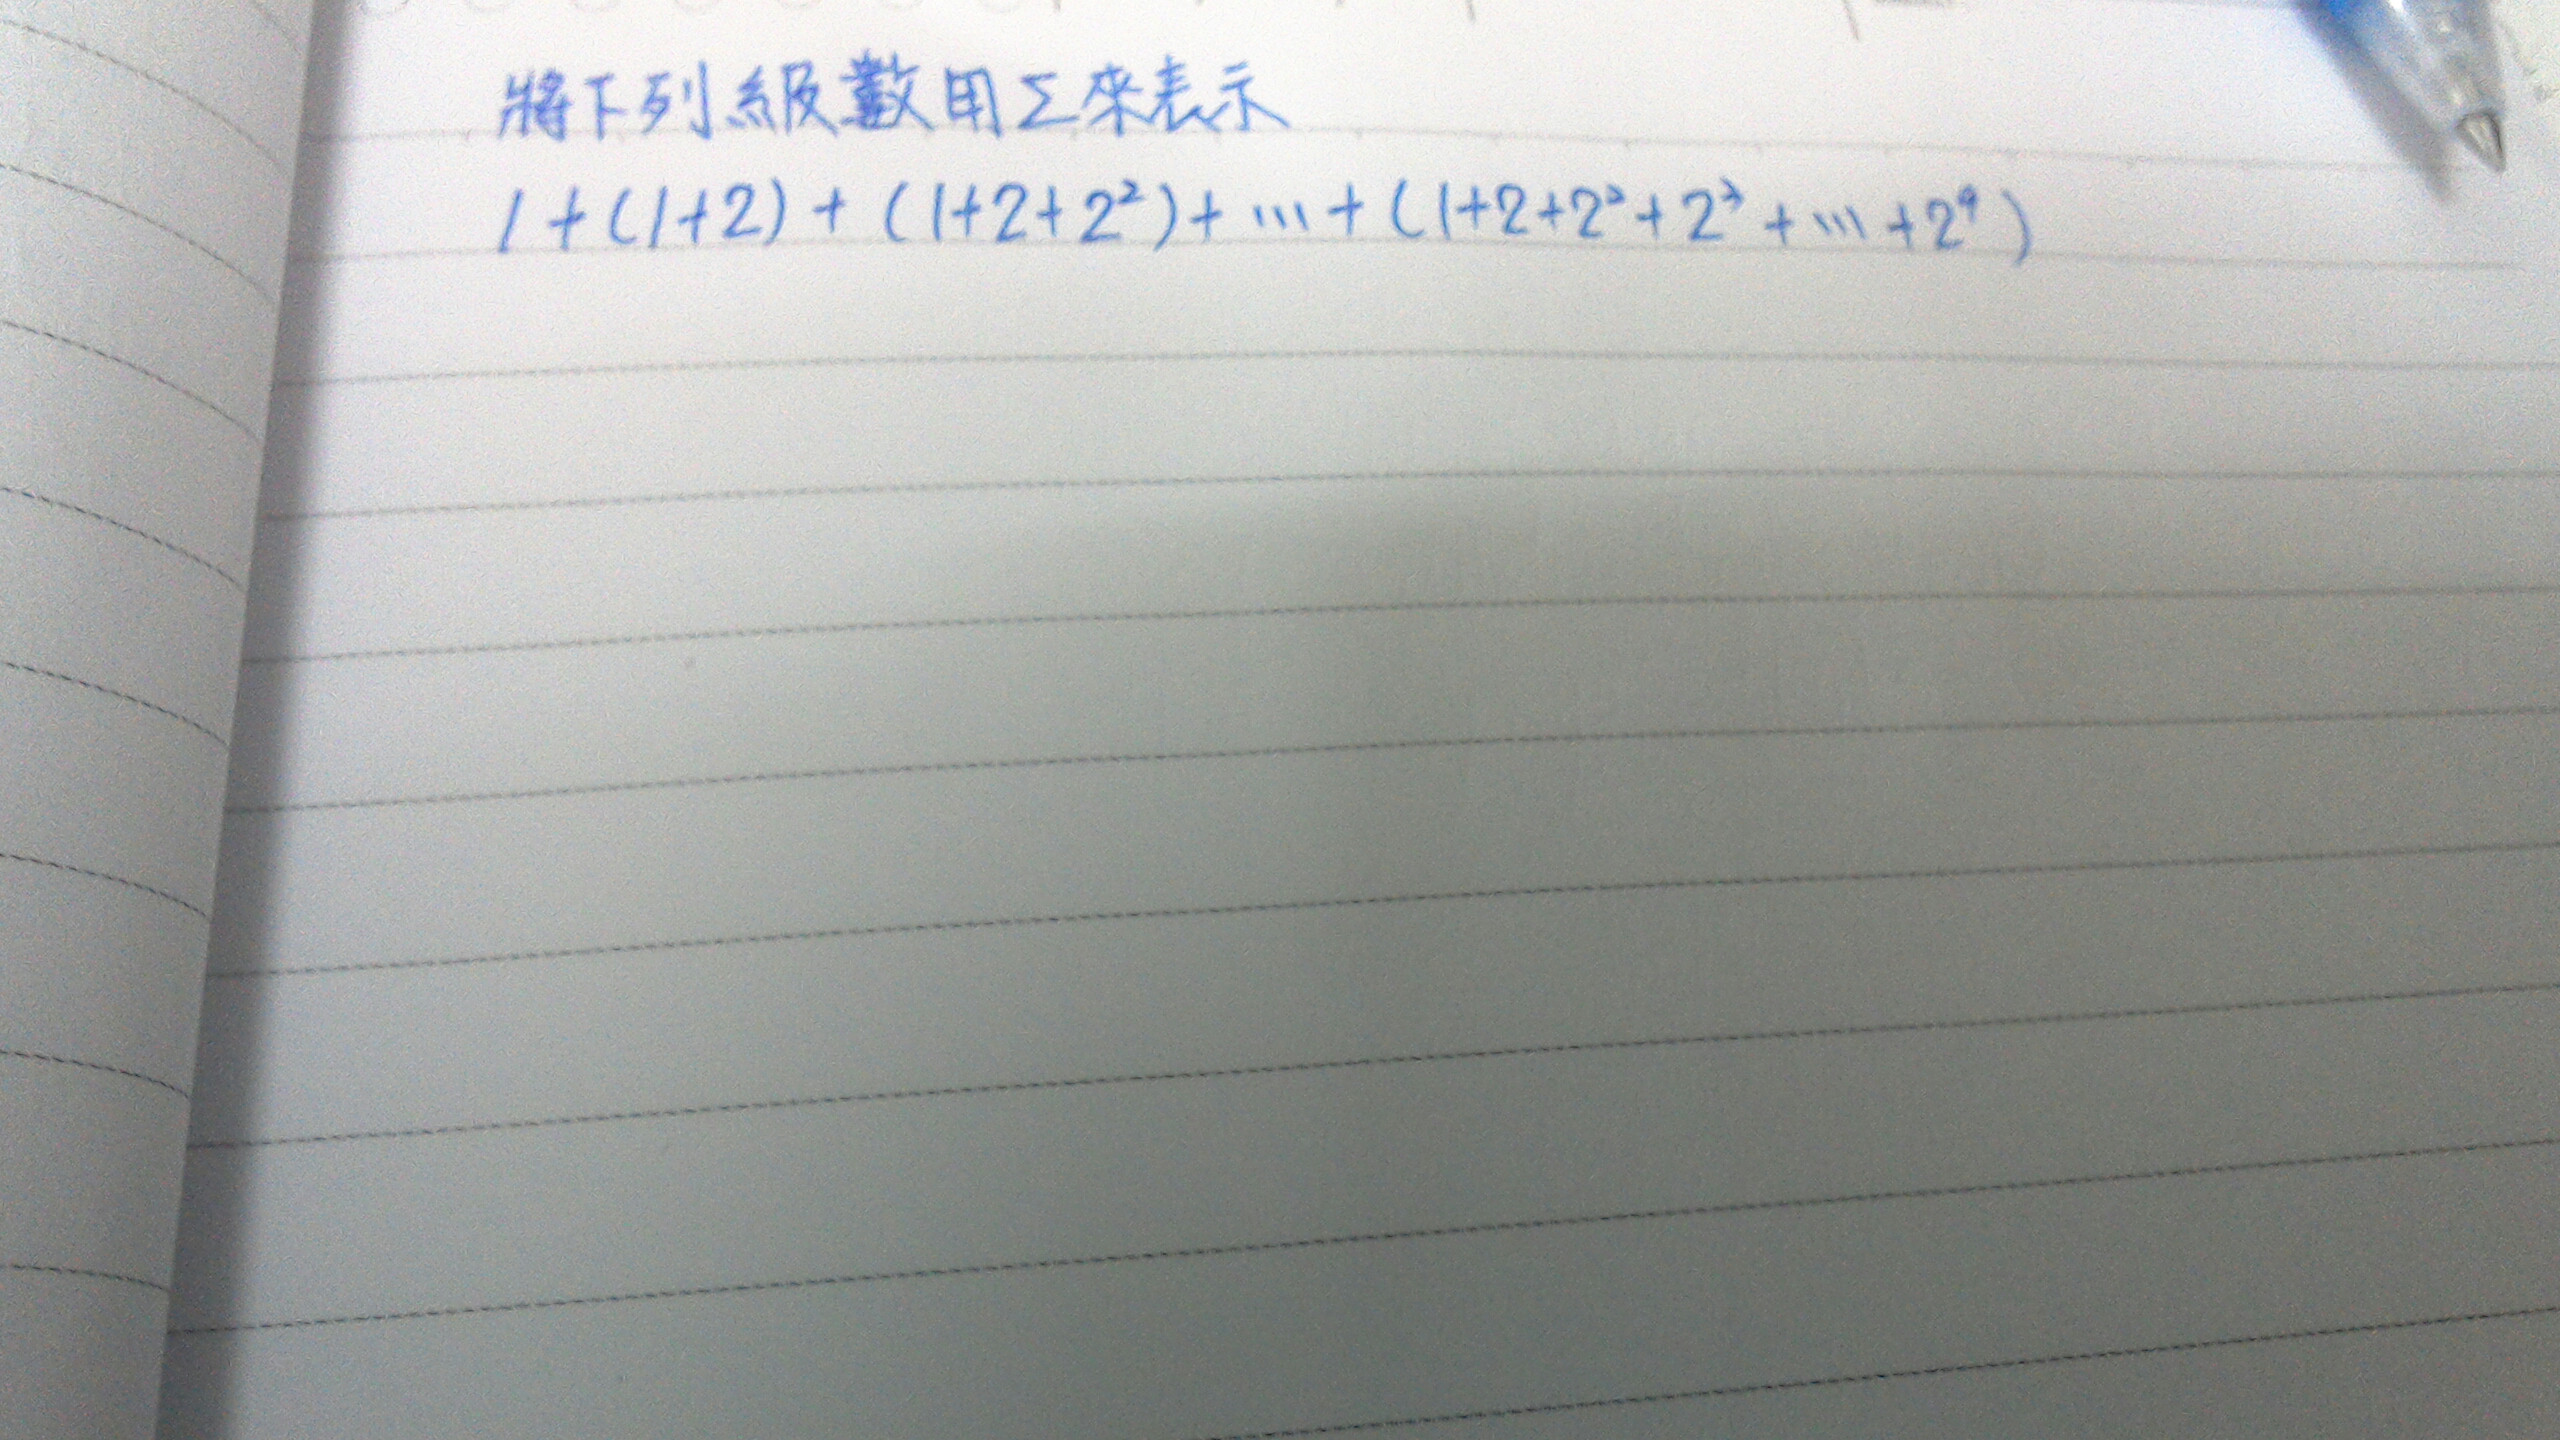 將下列級數用Σ來表示
1+(1+2)+(1+2+2²)+…+(1+2+2²+2³+…+2⁹)